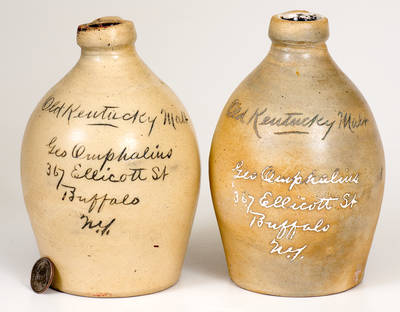 Old Kentucky Mash
Geo Omphalius
367 Ellicott St
Buffalo
N.Y.
Old Kentucky Mash
Geo Omphalius
367 Ellicott St
Buffalo
N.Y.